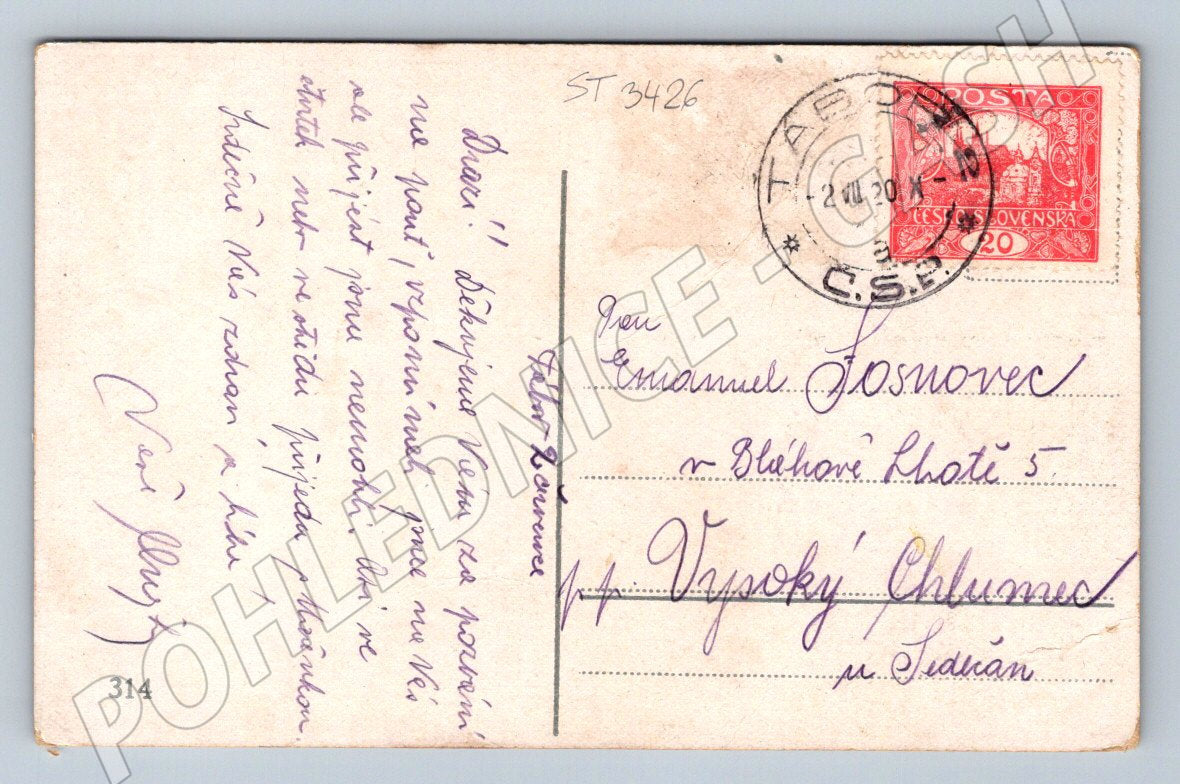 ST 3426
TÁBOR 2
-2.VII.20.X-
* a *
Č.S.P.
POSTA
ČESKOSLOVENSKÁ
20
Tábor 2 července
Drazí! Děkujeme Vám za pozvání
na pouť, vzpomínali jsme na Vás
ale přijet jsme nemohli. Asi ve
čtvrtek neb ve středu přijedu
Srdečně Vás zdraví a líbá
Vaši
Pan
Emanuel Sosnovec
v Bláhově Lhotě 5.
p.p. Vysoký Chlumec
u Sedlčan
314
POHLEDNICE -